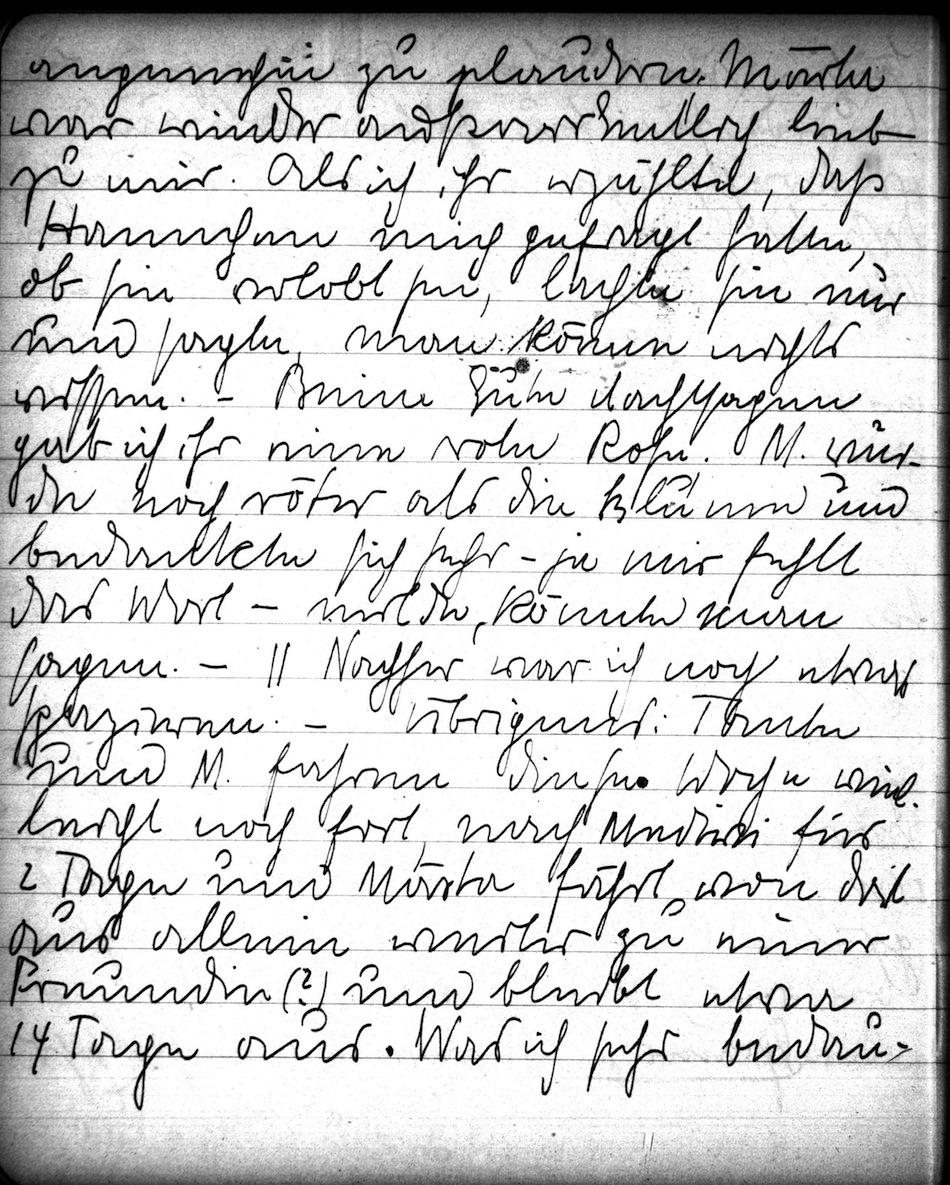 angenehm zu plaudern. Märta
war wieder außerordentlich lieb
zu mir. Als ich ihr erzählte, daß
Hannchen mich gefragt hatte,
ob sie verlobt sei, lachte sie nur
und sagte, man könne nichts
wissen. – Beim Gute Nachtsagen
gab ich ihr eine rote Rose. M. wur-
de noch röter als die Blume und
bedankte sich sehr – ja mir fehlt
das Wort – milde, könnte man
sagen. – || Nachher war ich noch etwas
spazieren. – Übrigens: Tante
und M. fahren diese Woche viel-
leicht noch fort, nach für
2 Tage und Märta fährt von dort
aus allein weiter zu einer
Freundin (?) und bleibt etwa
14 Tage aus. Was ich sehr bedau-